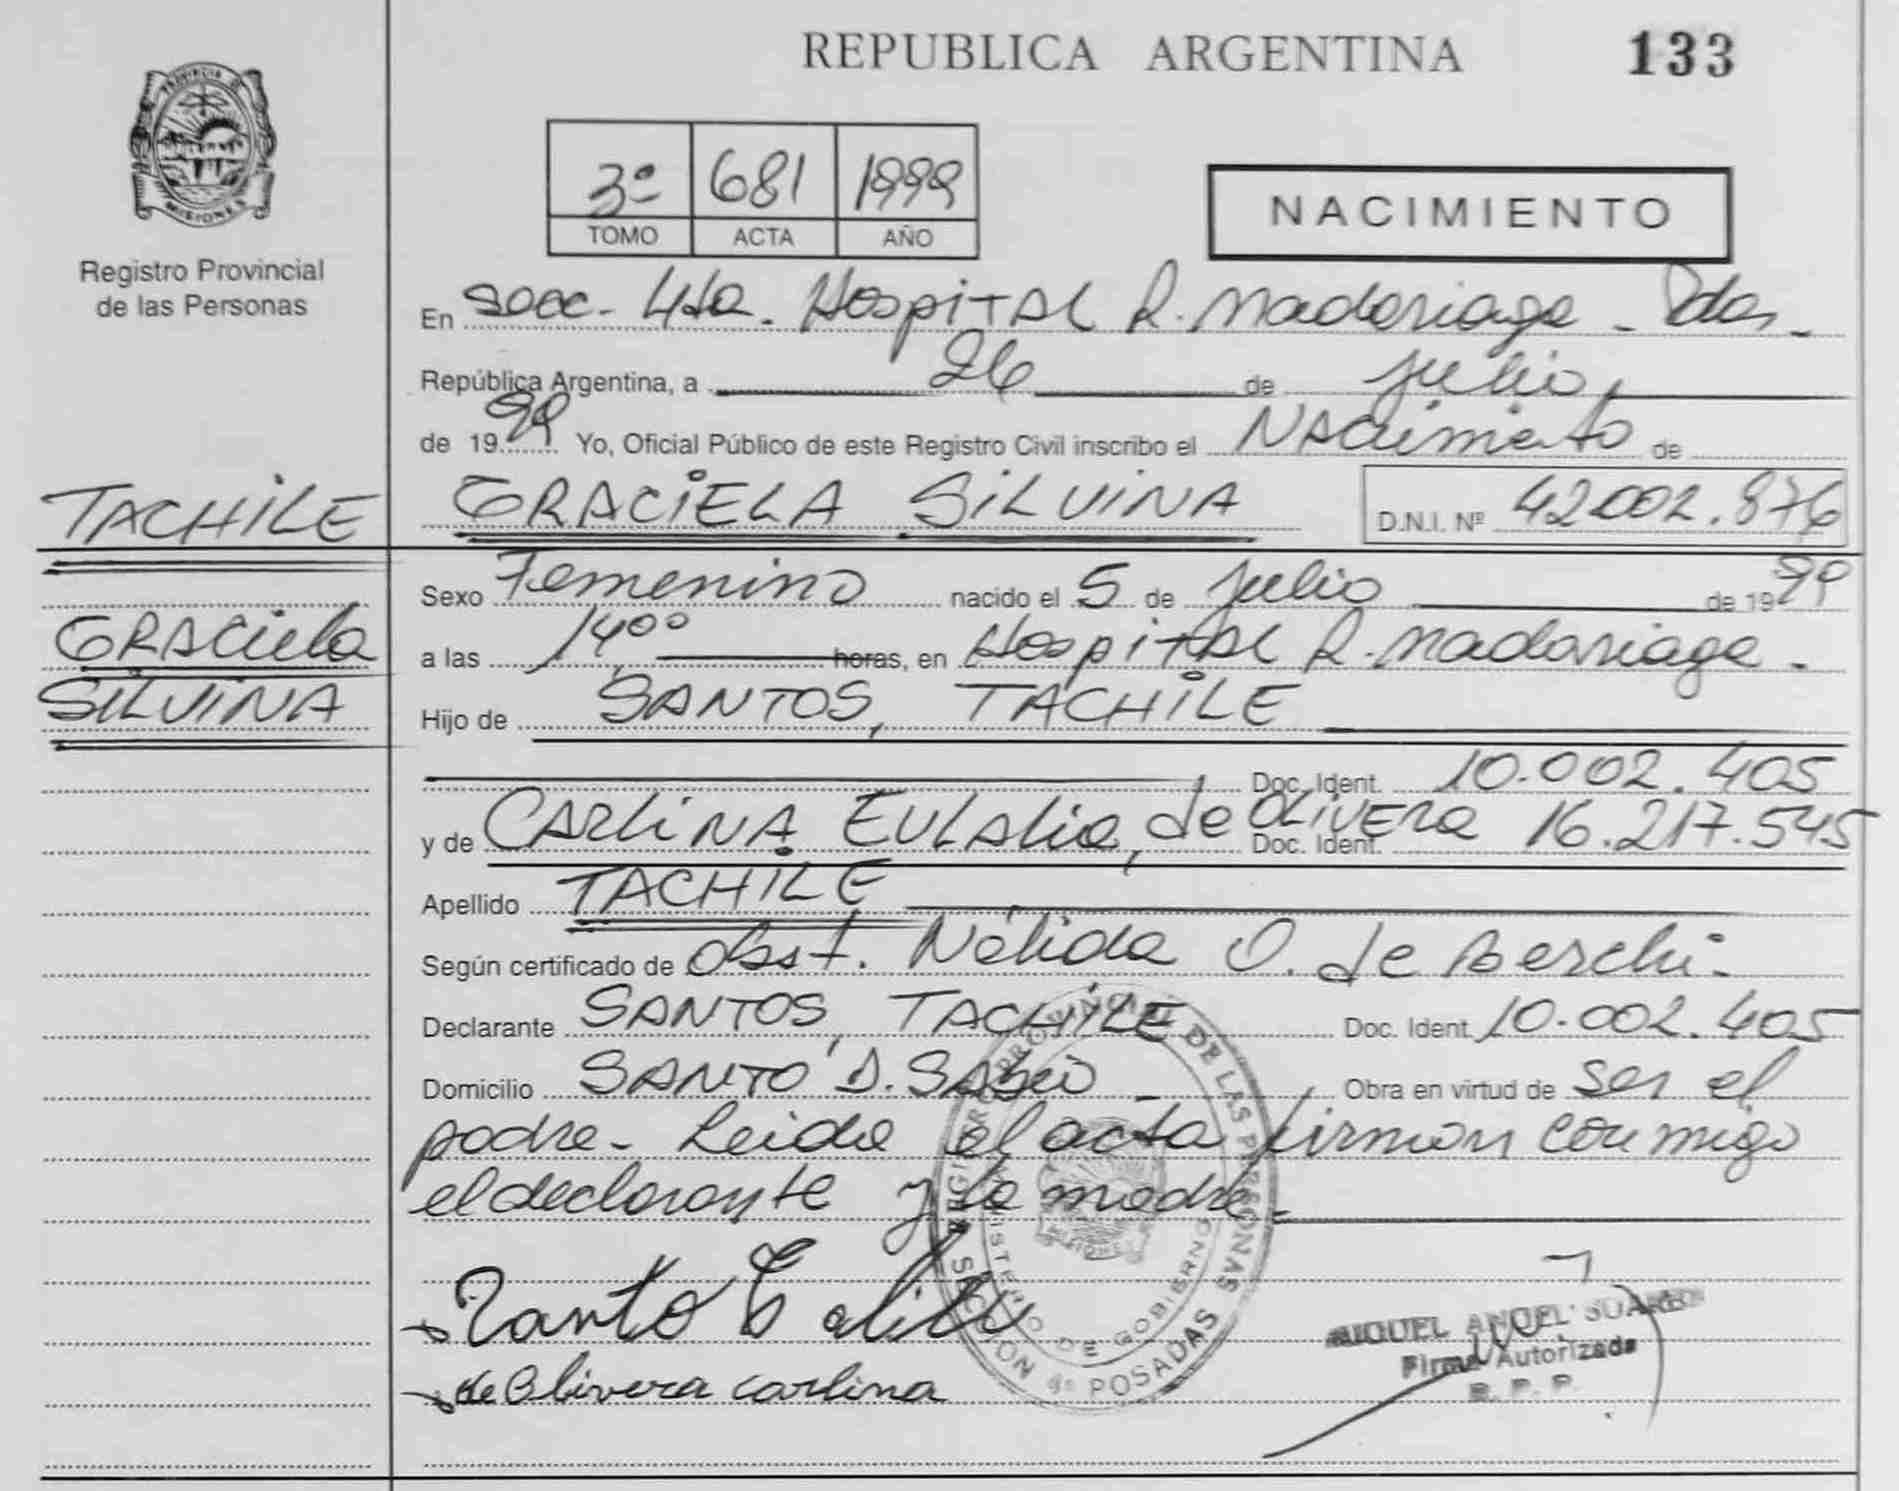 REPUBLICA ARGENTINA 133
PROVINCIA DE MISIONES
Registro Provincial
de las Personas
3º 681 1999
TOMO ACTA AÑO
NACIMIENTO
En Secc. 4ta. Hospital R. Madariaga - Pdas.
República Argentina, a 26 de Julio
de 1999 Yo, Oficial Público de este Registro Civil inscribo el Nacimiento de
TACHILE GRACIELA SILVINA D.N.I. Nº 42.002.876
Sexo Femenino nacido el 5 de Julio de 1999
GRACiela a las 14ºº horas, en Hospital R. Madariaga.
SILVINA Hijo de SANTOS, TACHILE
Doc. Ident. 10.002.405
y de CARLINA EULALIA, de OLIVERA Doc. Ident. 16.217.545
Apellido TACHILE
Según certificado de Obst. Nélida O. de
Declarante SANTOS, TACHILE Doc. Ident. 10.002.405
Domicilio SANTO D. SABIO - Obra en virtud de ser el
padre - Leida el acta firman conmigo
el declarante y la madre.
Santo
de Olivera Carlina
REGISTRO PROVINCIAL DE LAS PERSONAS
MINISTERIO DE GOBIERNO
SECCIÓN 4ª POSADAS
MIGUEL ANGEL SUAREZ
Firma Autorizada
R. P. P.